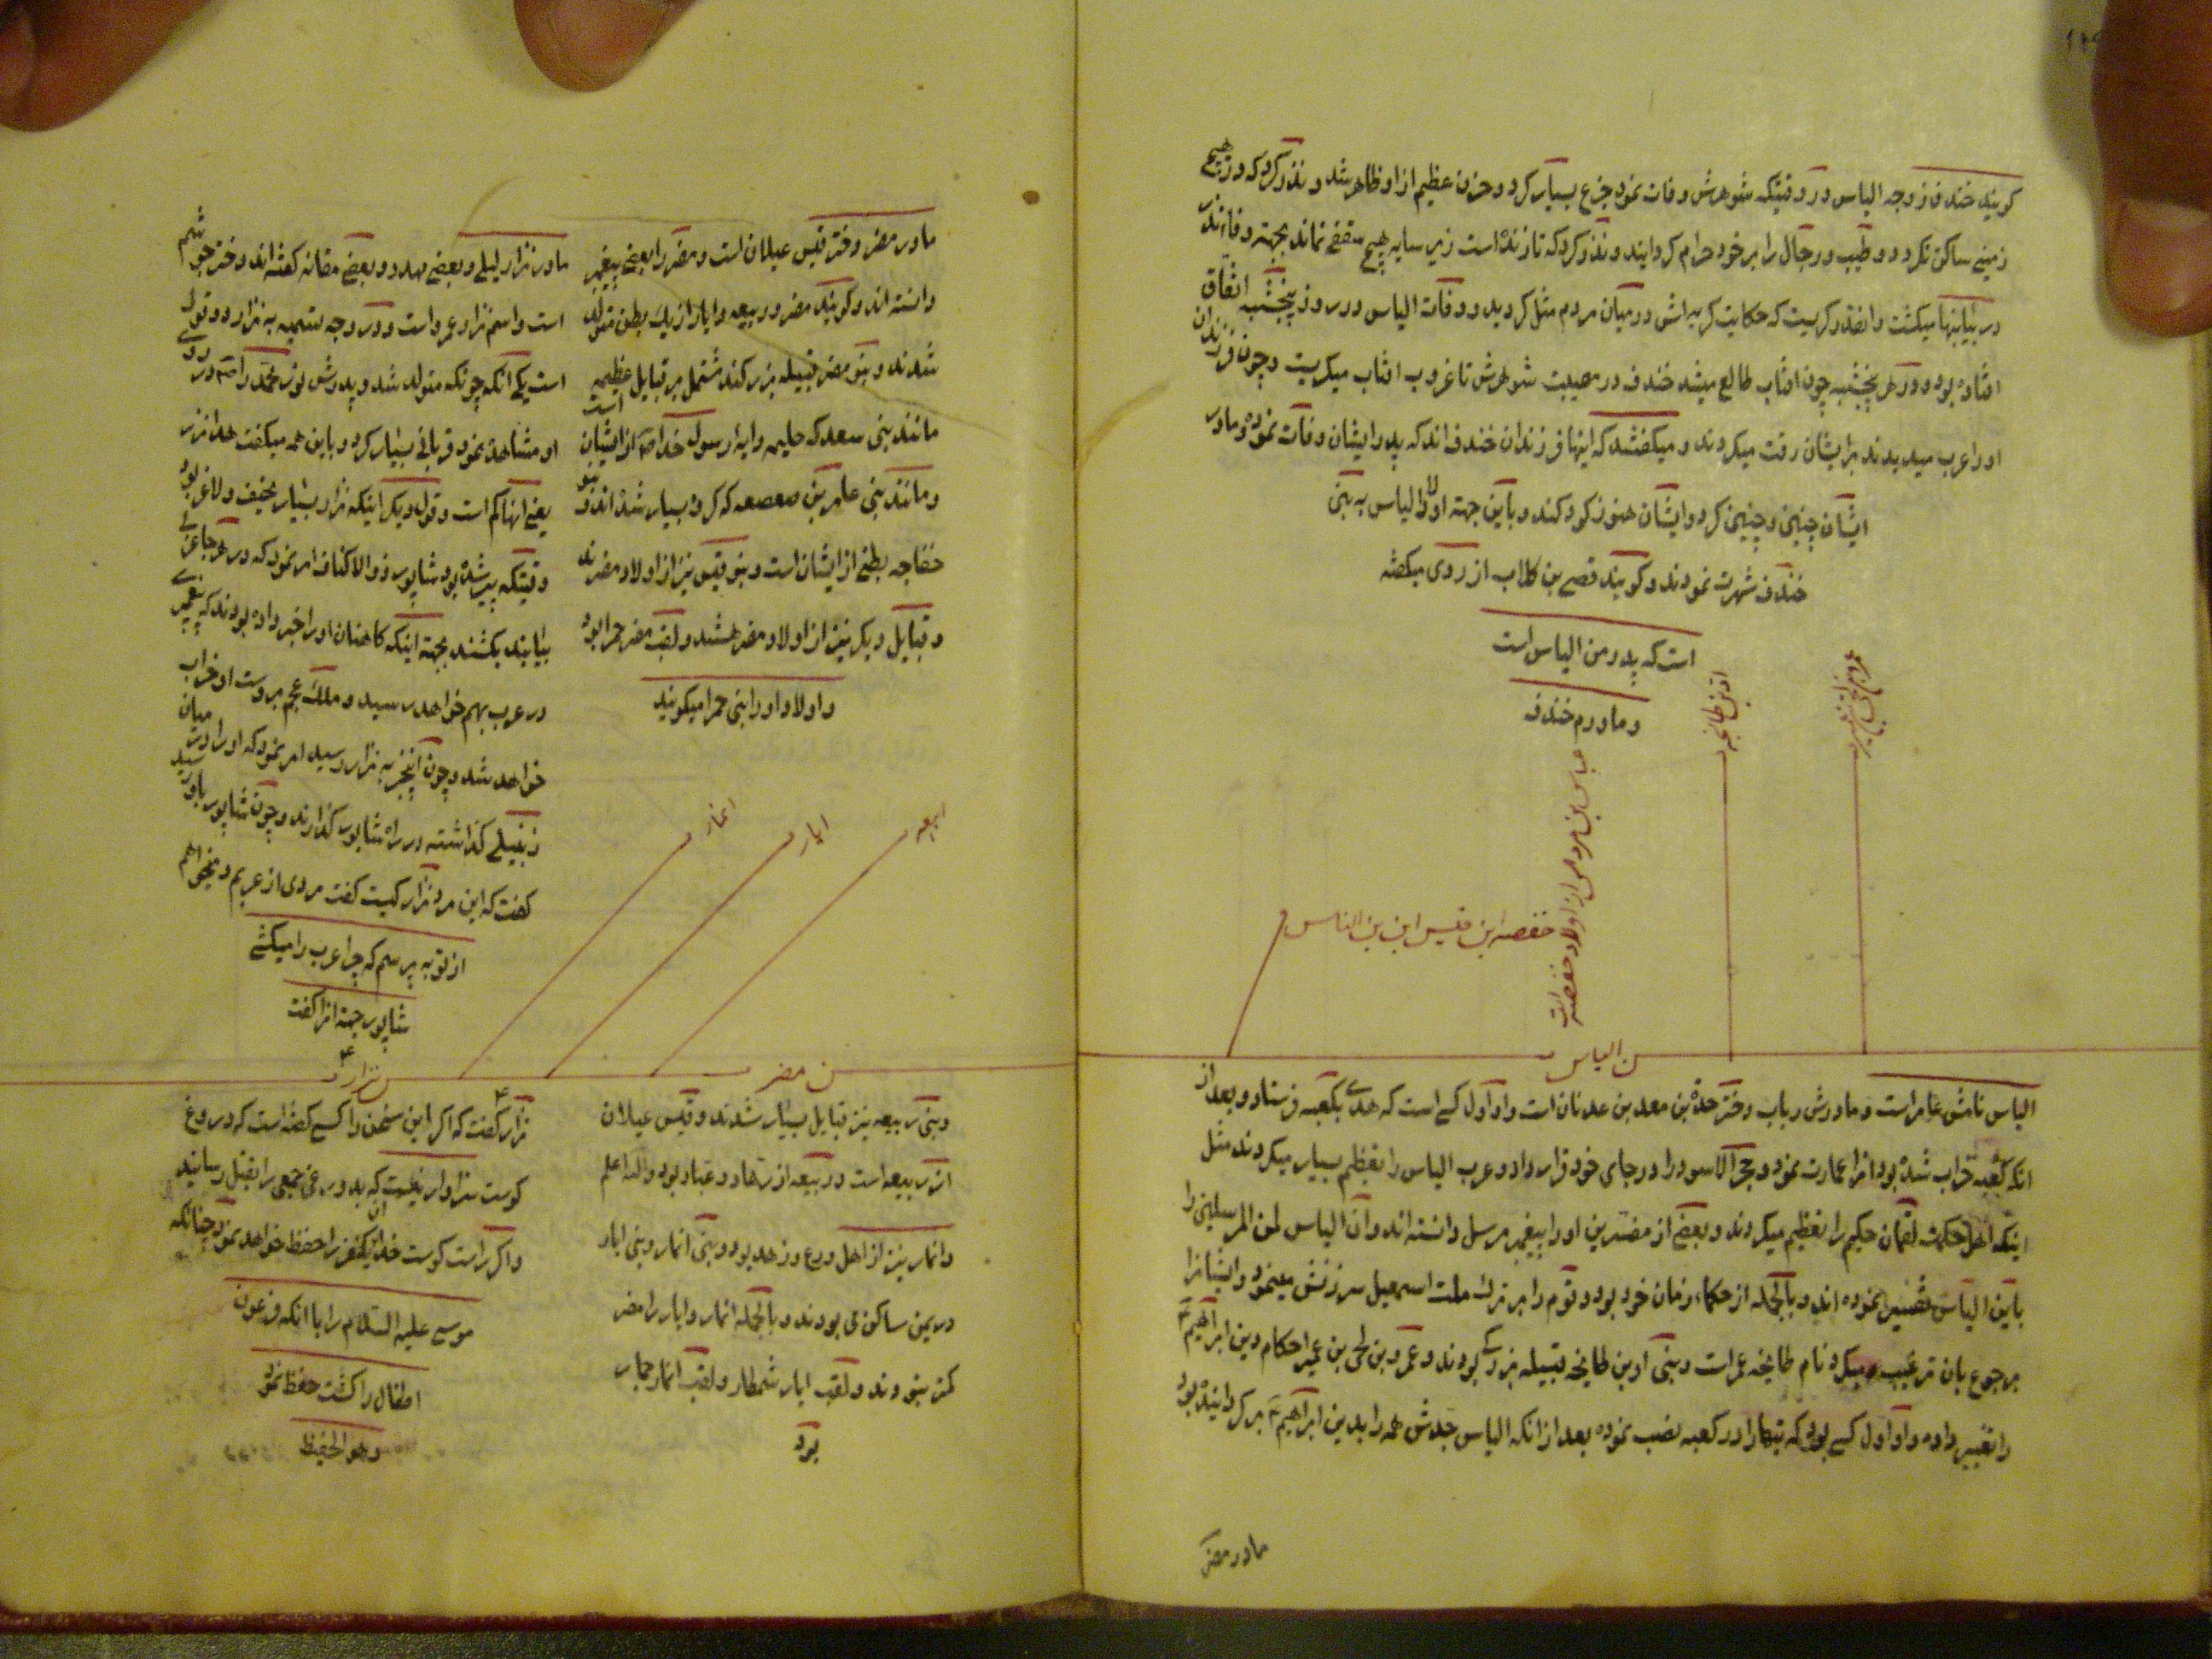 گویند خندف زوجه الیاس در وقتیکه شوهرش وفات نمود جزع بسیار کرد و حزن عظیم از او ظاهر شد و نذر کرد که در هیچ
زمینی ساکن نگردد و طیب و رجال را بر خود حرام گردانید و نذر کرد که تا زنده است زیر سایه هیچ سقفی نماند بجهته وفا نذر
در بیابانها میکشت و انقدر کریست که حکایت کریه اش در میان مردم مثل کردید و وفات الیاس در روز پنجشنبه اتفاق
افتاده بود و در هر پنجشنبه چون افتاب طالع میشد خندف در مصیبت شوهرش تا غروب افتاب میکریست و چون فرزندان
او را عرب میدیدند برایشان رقت میکردند و میکفتند که اینها فرزندان خندف اند که پدر ایشان وفات نموده و مادر
ایشان چنین و چنین کرد و ایشان هنوز کودکند و باین جهته اولاد الیاس به بنی
خندف شهرت نمودند و کویند قصی بن کلاب از روی میکفته
است که پدر من الیاس است
و مادرم خندف
اد بن طابخه
عباس ابن مرداس از اولاد خفصه است
خفصه ابن قیس ابن بن الناس
بن الیاس
الیاس نامش عامر است و مادرش رباب دختر حدة بن معد بن عدنان است و او اول کسی است که هدی بکعبه فرستاد و بعد از
انکه کعبه خراب شده بود انرا عمارت نمود و حجر الاسود را در جای خود قرار داد و عرب الیاس را تعظیم بسیار میکردند مثل
اینکه اهل حکمت لقمان حکیم را تعظیم میکردند و بعضی از مفسرین او را پیغمبر مرسل دانسته اند و ان الیاس لمن المرسلین را
باین الیاس تفسیر نموده اند و بالجمله از حکماء زمان خود بود و قوم را بر ترک ملت اسمعیل سرزنش مینمود و ایشانرا
برجوع بان ترغیب میکرد نام طابخه عمر است و بنی اد بن طابخه قبیله بزرکی بودند و عمرو بن لحی بن احکام دین ابراهیم
را تغییر داده و او اول کسی بود که بتها را در کعبه نصب نموده بعد از انکه الیاس جدش همه را بدین ابراهیم بر کردانیده بود
مادر مضر
مادر مضر دختر قیس عیلان است و مضر را بعضی پیغمبر
دانسته اند و کویند مضر و ربیعه و ایار از یک بطن متولد
شدند و بنو مضر قبیله بزرکند مشتمل بر قبایل عظیمه است
مانند بنی سعد که حلیمه دایه رسول خدا ص از ایشان
و مانند بنی عامر بن صعصعه که کروه بسیار شده اند و بنو
خفاجه بطنی از ایشان است و بنو قیس نیز از اولاد مضرند
و قبایل دیکر نیز از اولاد مضر هستند و لقب مضر حمرا بود
و اولاد او را بنی حمرا میکویند
ربیعه
ایار
انمار
بن مضر
و بنی ربیعه نیز قبایل بسیار شدند و قیس عیلان
از ربیعه است و ربیعه از زهاد و عباد بود والله اعلم
و انمار نیز از اهل ورع و زهد بود و بنی انمار و بنی ایار
در یمن ساکن می بودند و بالجمله انمار و ایار را مضر
کمتر بنودند و لقب ایار شمطا و لقب انمار حمار
بود
مادر نزار لیلی و بعضی مهدد و بعضی معانه کفته اند دختر جوشم
است و اسم نزار عمر و است و در وجه تسمیه به نزار دو قول
است یکی انکه چونکه متولد شد و پدرش نور محمد را ص در روی
او مشاهده نمود قربانی بسیار کرد و باین همه میکفت هذا نزر
یعنی اینها کم است و قول دیکر اینکه نزار بسیار نحیف و لاغر بود
وقتیکه پیر شده بود شاپور ذوالاکتاف امر نمود که در هر جا عربی
بیابند بکشند بجهته اینکه کاهنان او را خبر داده بودند که پیغمبری
در عرب بهم خواهد رسید و ملک عجم بر دست او خراب
خواهد شد و چون اینخبر به نزار رسید امر نمود که او را در میان
زنبیلی کذاشته در راه شاپور کذارند و چون شاپور باو رسید
کفت که این مرد نزار کیست کفت مردی از عربم و میخواهم
از تو به پرسم که چرا عرب را میکشی
شاپور جهته انرا کفت
بن نزار
نزار کفت که اکر این سخن را کسی کفته است که دروغ
کوست سزاوار نیست که بدروغی جمعی را بقتل رسانید
و اکر راست کوست خدا ان یکنفر را حفظ خواهد نمود چنانکه
موسی علیه السلام را با انکه فرعون
اطفال را کشت حفظ نمود
و هو الحفیظ